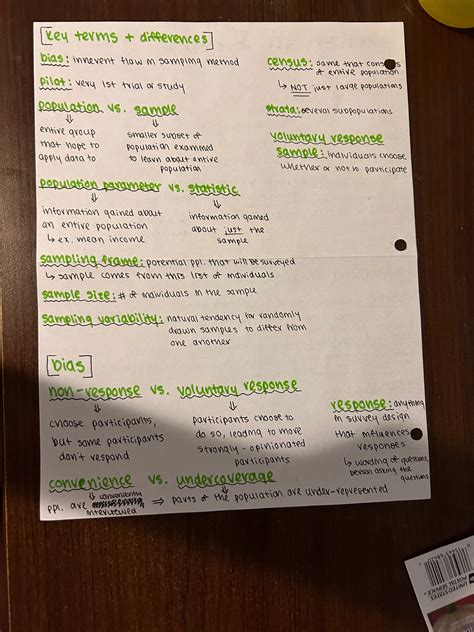 [key terms + differences]
bias: innerent flaw in sampling method
pilot: very 1st trial or study
population vs. sample
entire group
that hope to
apply data to
smaller subset of
population examined
to learn about entire
population
population parameter vs. statistic
information gained about
an entire population
↳ ex. mean income
information gained
about just the
sample
sampling frame: potential ppl. that will be surveyed
↳ sample comes from this list of individuals
sample size: # of individuals in the sample
sampling variability: natural tendency for randomly
drawn samples to differ from
one another
census: same that
of entire population
↳ NOT just large populations
strata: several subpopulations
voluntary response
sample: individuals choose
whether or not to participate
[bias]
non-response vs. voluntary response
choose participants,
but some participants
don't respond
participants choose to
do so, leading to more
strongly-opinionated
participants
response: anything
in survey design
that influences
responses
↳ wording of questions,
person asking the
questions
convenience vs. undercoverage
ppl. are conveniently
interviewed
⇒ parts of the population are under-represented
UNITED STATES
POSTAL SERVICE